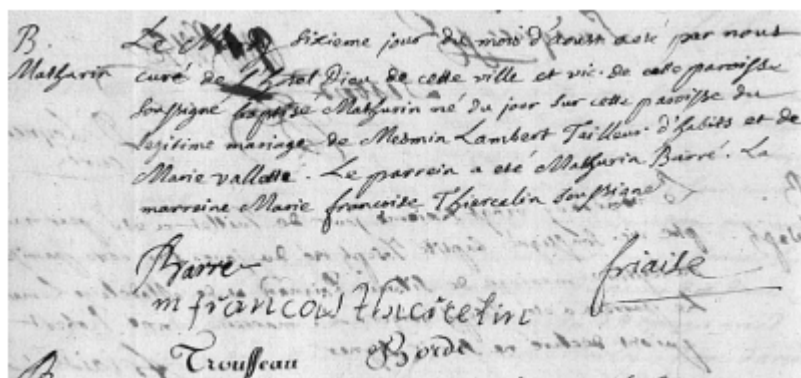 B.
Mathurin
Le sixieme jour du mois d'aoust a esté par nous
curé de l'hotel Dieu de cette ville et vic. de cette paroisse
soussigné baptisé Mathurin né du jour sur cette paroisse du
legitime mariage de Mesmin Lambert Tailleur d'habits et de
Marie vallotte. Le parrein a eté Mathurin Barré. La
marreine Marie francoise Thiercelin soussigné
Barre friaise
m francois
Trousseau Borde